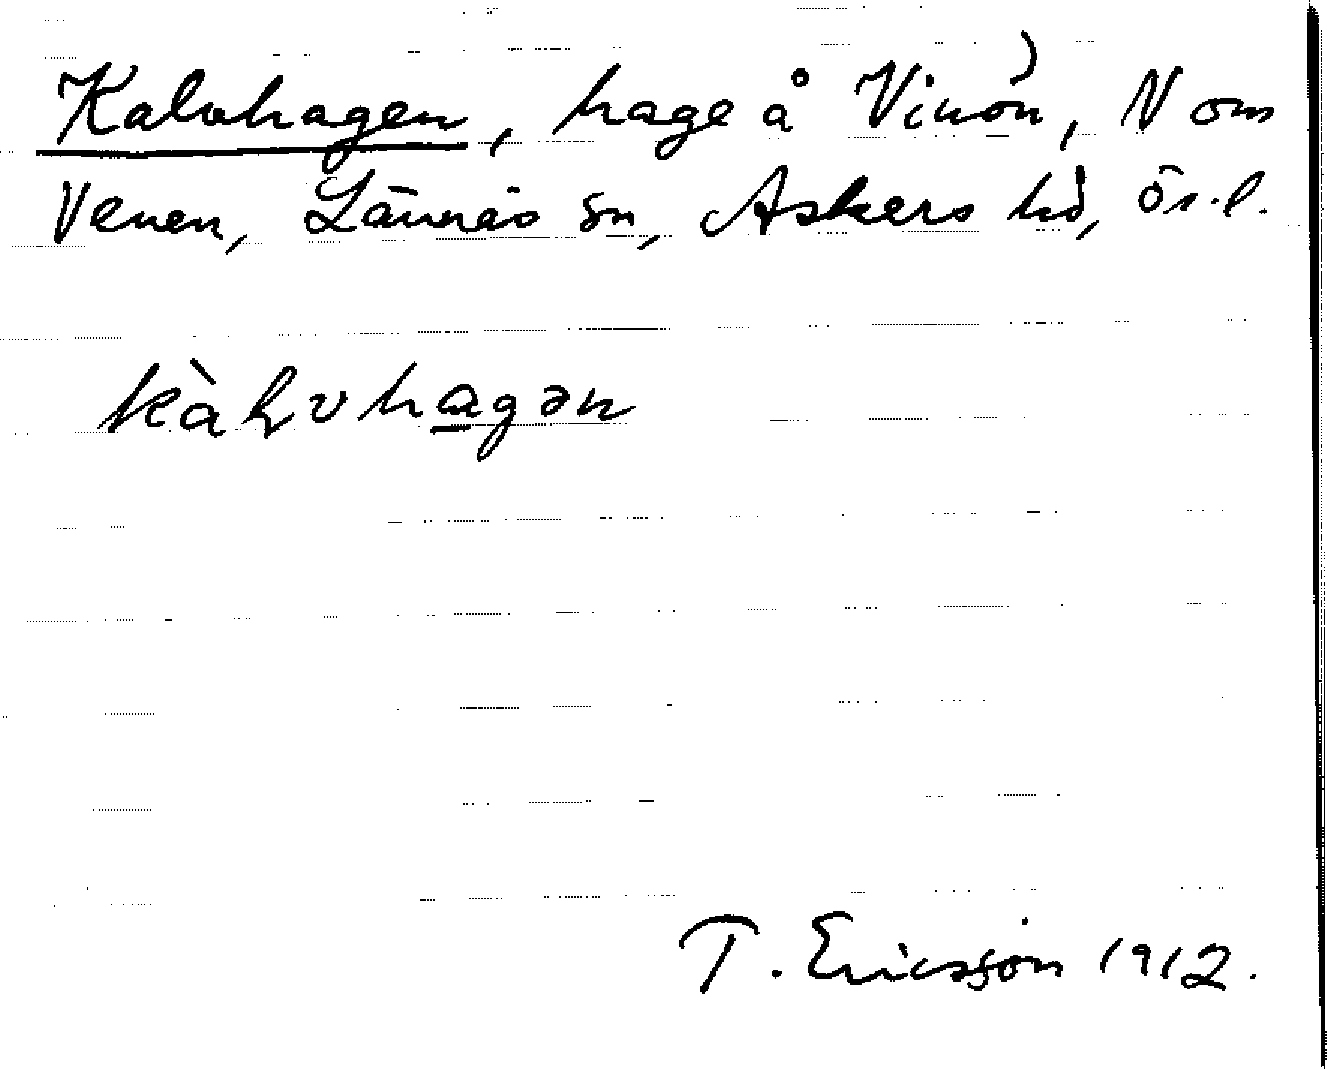 Kalvhagen, hage å Vinön, N om
Venen, Lännäs sn, Askers hd, ör. l.
kàɽvhagən
T. Ericsson 1912.